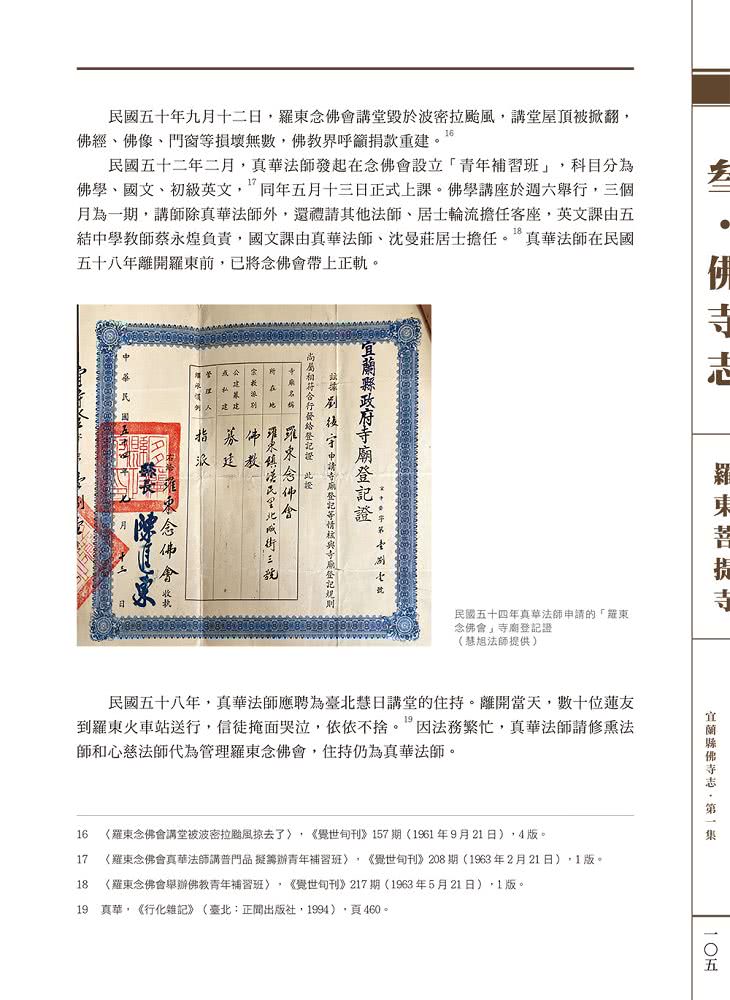 民國五十年九月十二日，羅東念佛會講堂毀於波密拉颱風，講堂屋頂被掀翻，
佛經、佛像、門窗等損壞無數，佛教界呼籲捐款重建。16
民國五十二年二月，真華法師發起在念佛會設立「青年補習班」，科目分為
佛學、國文、初級英文，17 同年五月十三日正式上課。佛學講座於週六舉行，三個
月為一期，講師除真華法師外，還禮請其他法師、居士輪流擔任客座，英文課由五
結中學教師蔡永煌負責，國文課由真華法師、沈曼莊居士擔任。18 真華法師在民國
五十八年離開羅東前，已將念佛會帶上正軌。
宜蘭縣政府寺廟登記證
字第壹捌壹號
茲據劉後宇申請寺廟登記等情核與寺廟登記規則
尚屬相符合行發給登記證 此證
寺廟名稱 羅東念佛會
所在地 羅東鎮漢民里北成街三號
宗教派別 佛教
公建募建或私建 募建
管理人
繼承慣例 指派
右給羅東念佛會收執
縣長 陳進東
中華民國五十四年七月十三日
民國五十四年真華法師申請的「羅東
念佛會」寺廟登記證
（慧旭法師提供）
民國五十八年，真華法師應聘為臺北慧日講堂的住持。離開當天，數十位蓮友
到羅東火車站送行，信徒掩面哭泣，依依不捨。19 因法務繁忙，真華法師請修熏法
師和心慈法師代為管理羅東念佛會，住持仍為真華法師。
16 〈羅東念佛會講堂被波密拉颱風掠去了〉，《覺世旬刊》157 期（1961 年 9 月 21 日），4 版。
17 〈羅東念佛會真華法師講普門品 擬籌辦青年補習班〉，《覺世旬刊》208 期（1963 年 2 月 21 日），1 版。
18 〈羅東念佛會舉辦佛教青年補習班〉，《覺世旬刊》217 期（1963 年 5 月 21 日），1 版。
19 真華，《行化雜記》（臺北：正聞出版社，1994），頁 460。
叁・佛寺志
羅東菩提寺
宜蘭縣佛寺志・第一集
一〇五